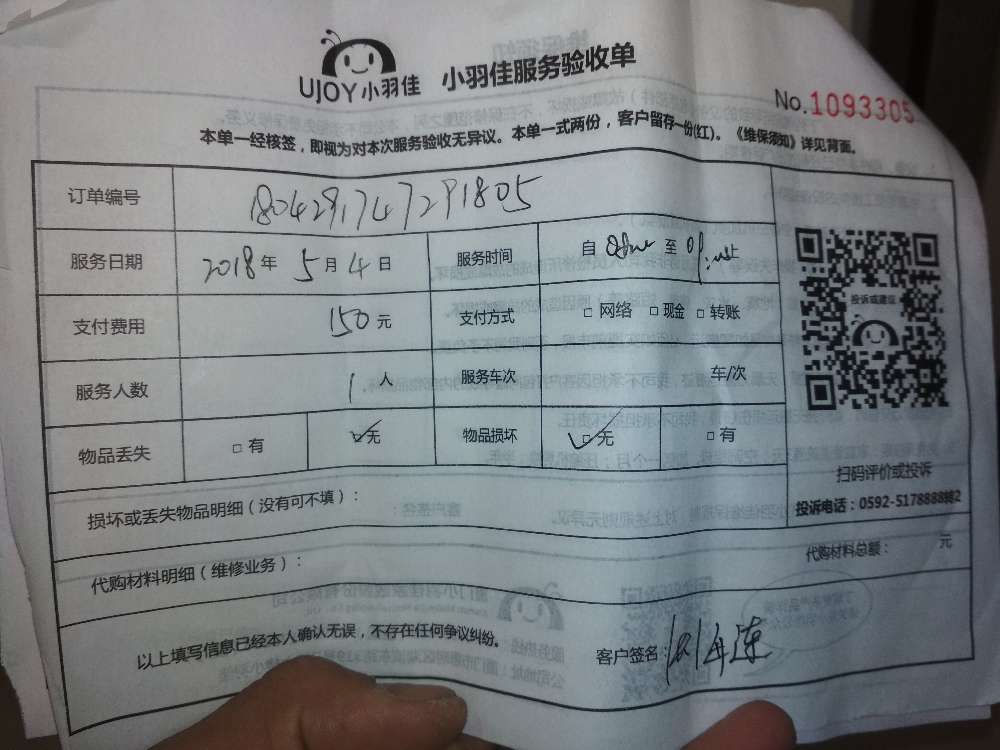 UJOY小羽佳 小羽佳服务验收单
No.1093305
本单一经核签，即视为对本次服务验收无异议。本单一式两份，客户留存一份(红)。《维保须知》详见背面。
订单编号 180429174729 1805
服务日期 2018年 5月4日 服务时间 自 至
支付费用 150元 支付方式 □ 网络 □ 现金 □ 转账
服务人数 1人 服务车次 车/次
物品丢失 □ 有 □无 物品损坏 □无 □有
投诉或建议
扫码评价或投诉
投诉电话：0592-5178888转2
损坏或丢失物品明细（没有可不填）：
代购材料明细（维修业务）： 代购材料总额： 元
以上填写信息已经本人确认无误，不存在任何争议纠纷。
客户签名：